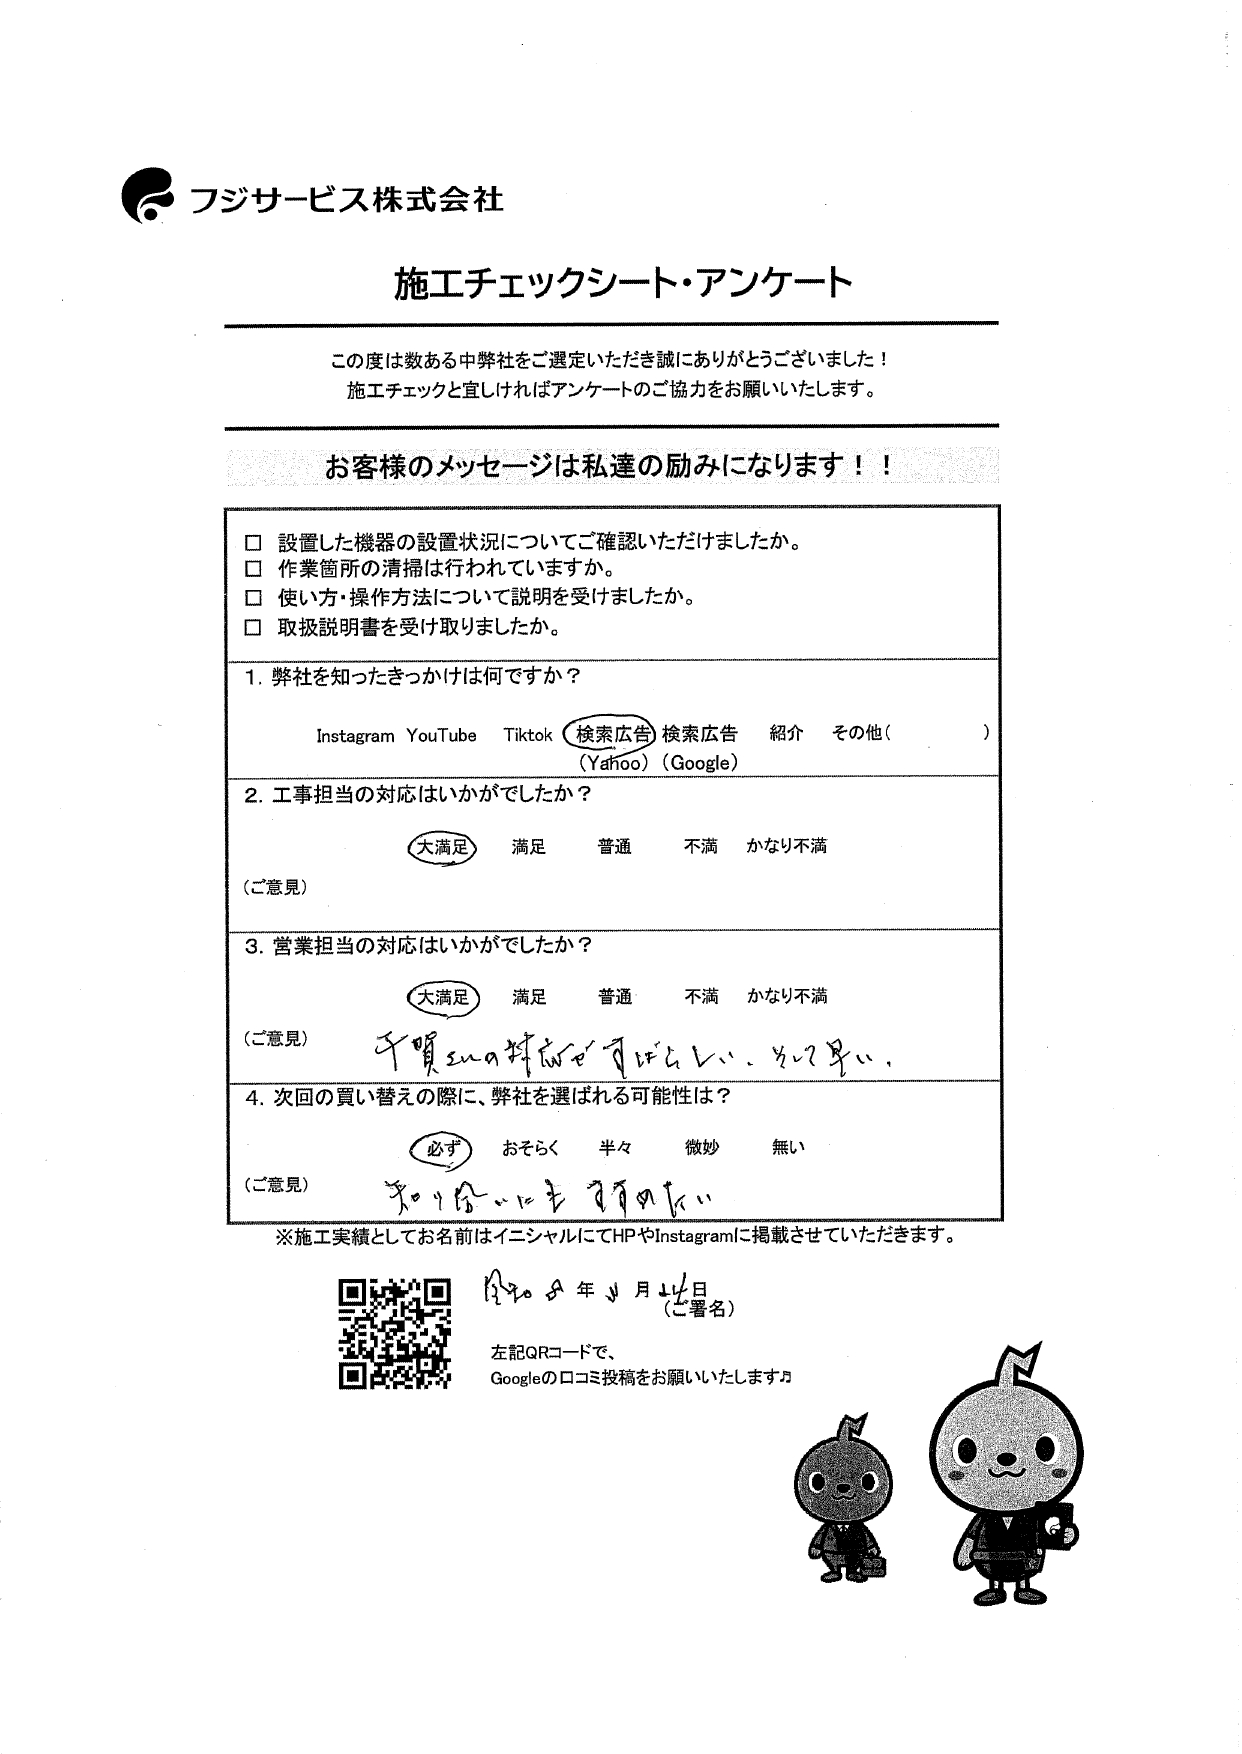 フジサービス株式会社
施工チェックシート・アンケート
この度は数ある中弊社をご選定いただき誠にありがとうございました！
施工チェックと宜しければアンケートのご協力をお願いいたします。
お客様のメッセージは私達の励みになります！！
□ 設置した機器の設置状況についてご確認いただけましたか。
□ 作業箇所の清掃は行われていますか。
□ 使い方・操作方法について説明を受けましたか。
□ 取扱説明書を受け取りましたか。
1. 弊社を知ったきっかけは何ですか？
Instagram YouTube Tiktok 検索広告 検索広告 紹介 その他( )
(Yahoo) (Google)
2. 工事担当の対応はいかがでしたか？
大満足 満足 普通 不満 かなり不満
(ご意見)
3. 営業担当の対応はいかがでしたか？
大満足 満足 普通 不満 かなり不満
(ご意見) 千賀さんの対応がすばらしい、そして早い、
4. 次回の買い替えの際に、弊社を選ばれる可能性は？
必ず おそらく 半々 微妙 無い
(ご意見) 知り合いにもすすめたい
※施工実績としてお名前はイニシャルにてHPやInstagramに掲載させていただきます。
令和 8 年 月 日
(ご署名)
左記QRコードで、
Googleの口コミ投稿をお願いいたします♫